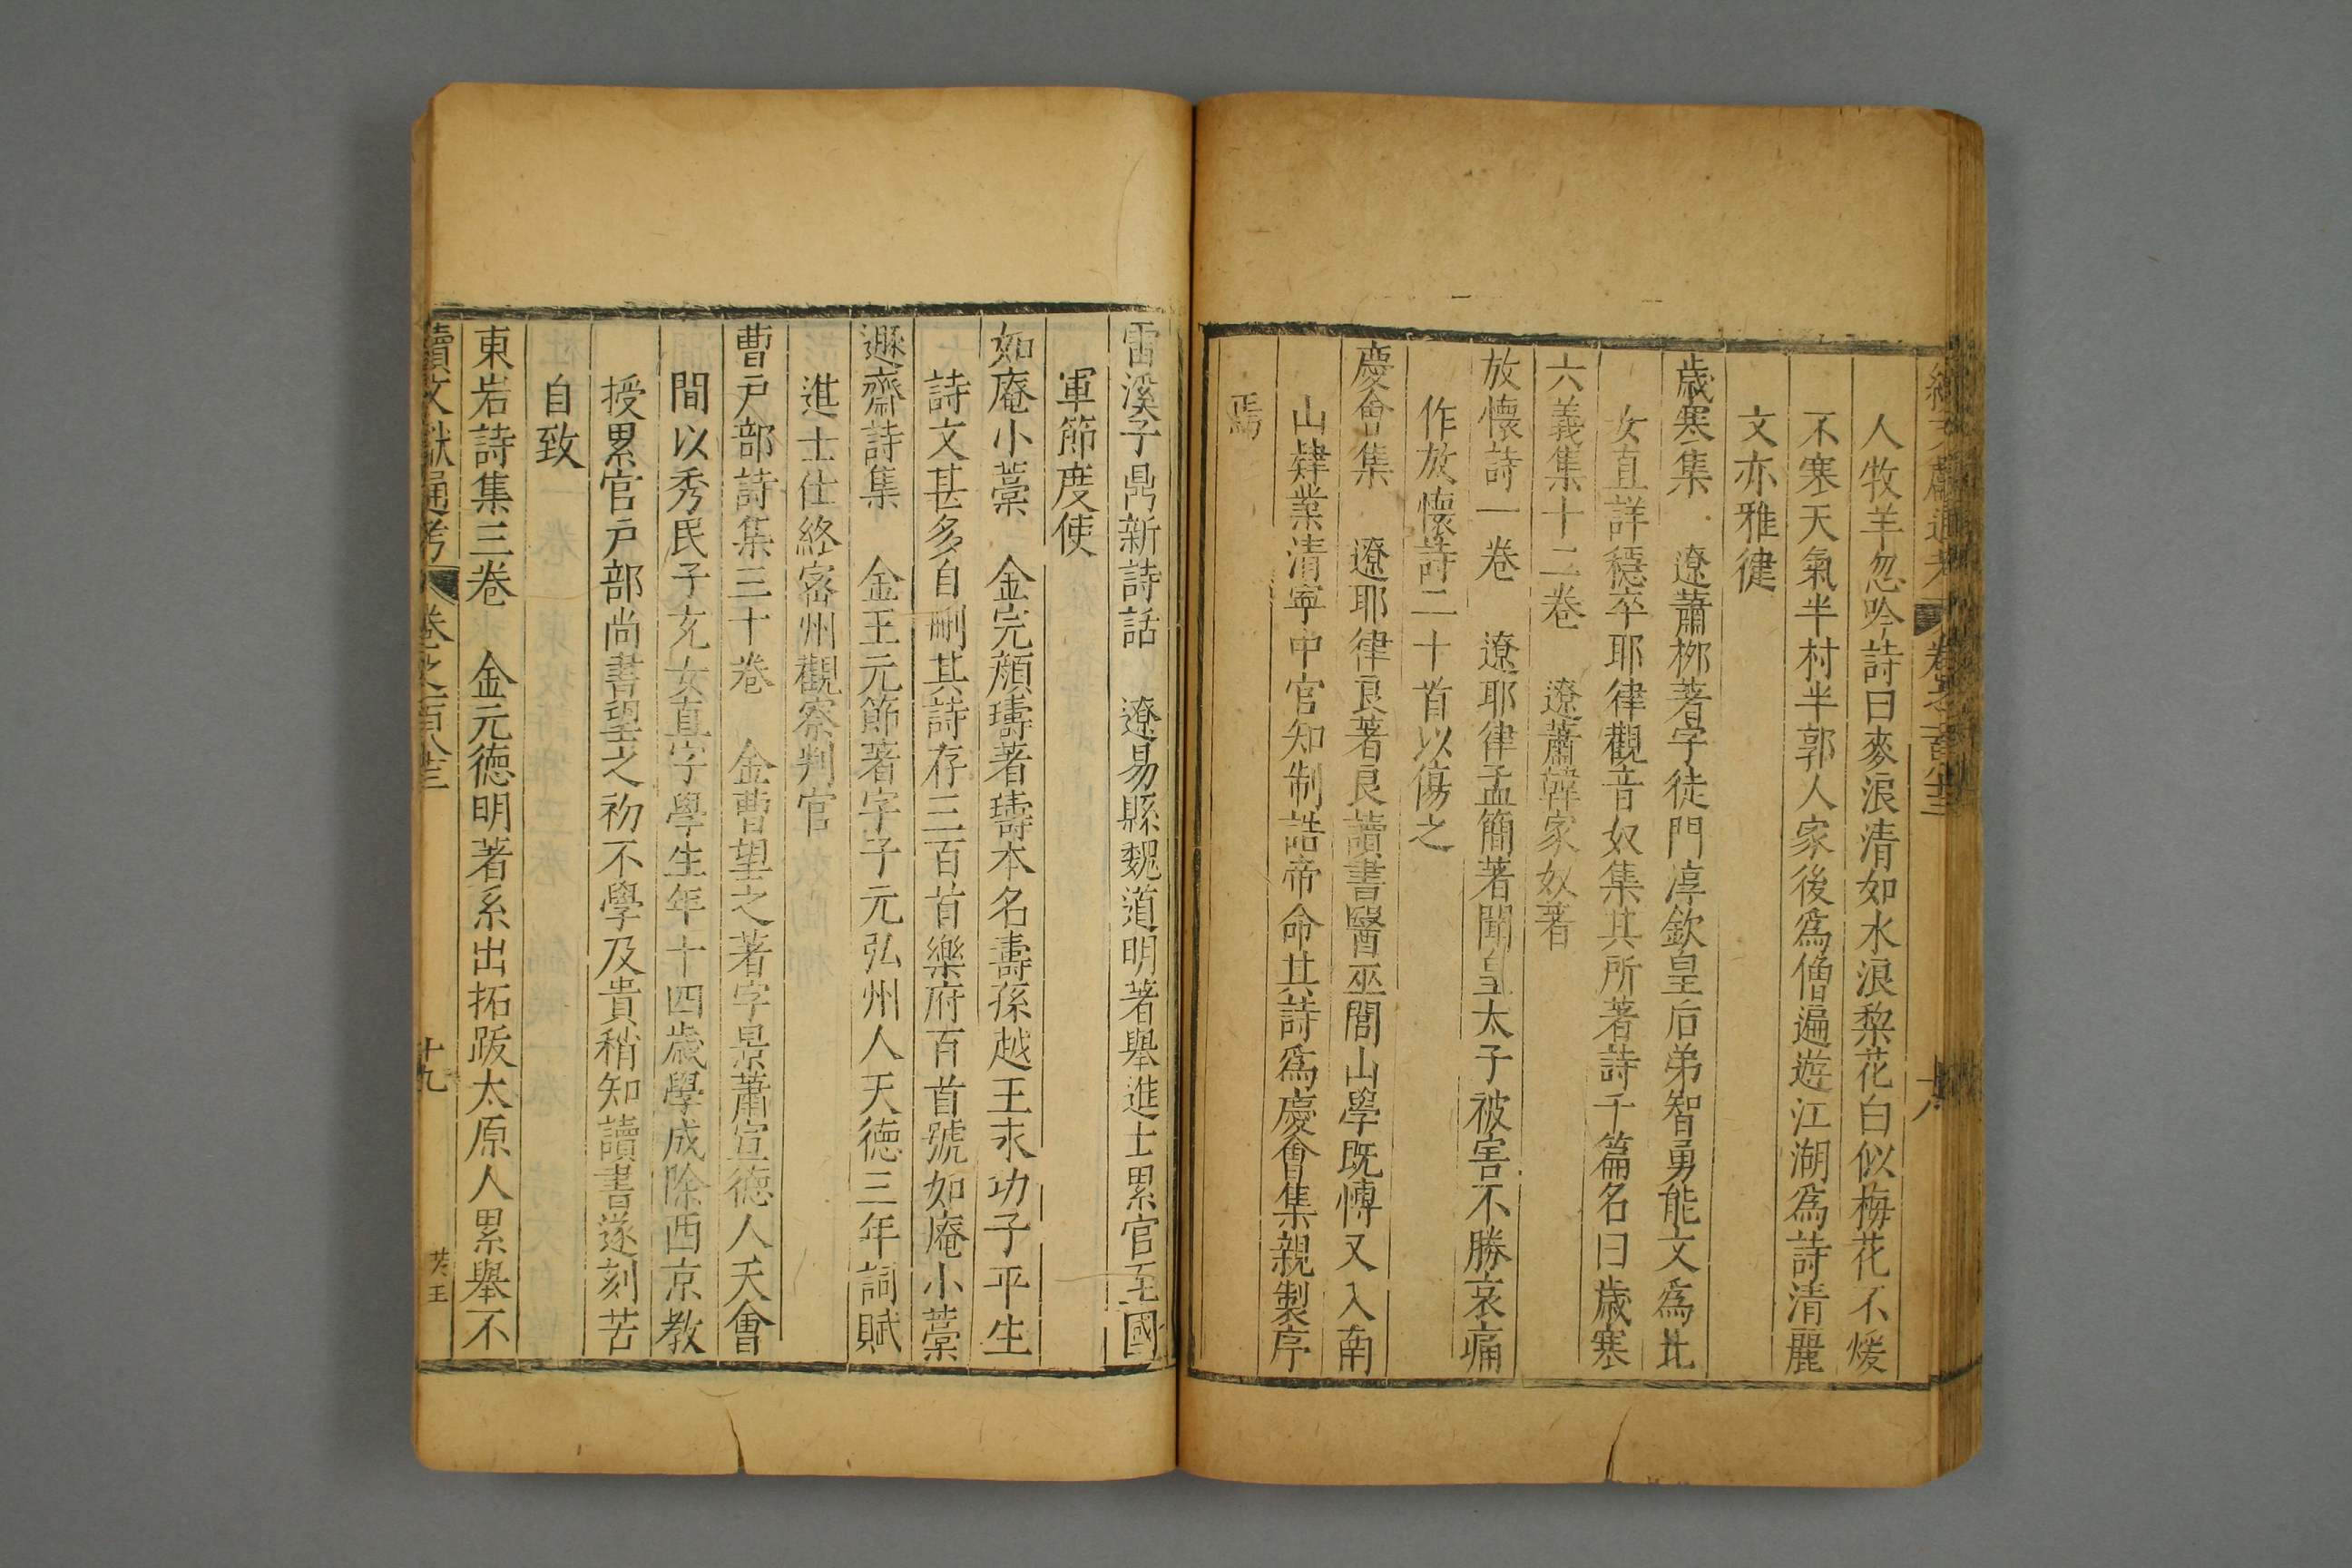 續文獻通考 卷之一百八十三 十八
人牧羊忽吟詩曰麥浪清如水浪梨花白似梅花不煖
不寒天氣半村半郭人家後爲僧遍遊江湖爲詩清麗
文亦雅健
歲寒集 遼蕭栁著字徒門淳欽皇后弟智勇能文爲北
女直詳穩卒耶律觀音奴集其所著詩千篇名曰歲寒
六義集十二卷 遼蕭韓家奴著
放懷詩一卷 遼耶律孟簡著聞皇太子被害不勝哀痛
作放懷詩二十首以傷之
慶會集 遼耶律良著良讀書醫巫閭山學既愽又入南
山肄業清寧中官知制誥帝命其詩爲慶會集親製序
焉
雷溪子鼎新詩話 遼易縣魏道明著舉進士累官至國
軍節度使
如庵小藁 金完顏璹著璹本名壽孫越王永功子平生
詩文甚多自刪其詩存三百首樂府百首號如庵小藁
遯齋詩集 金王元節著字子元弘州人天德三年詞賦
進士仕終密州觀察判官
曹戶部詩集三十卷 金曹望之著字景蕭宣德人天會
間以秀民子充女直字學生年十四歲學成除西京教
授累官戶部尚書望之初不學及貴稍知讀書遂刻苦
自致
東岩詩集三卷 金元德明著系出拓跋太原人累舉不
續文獻通考 卷之一百八十三 十九